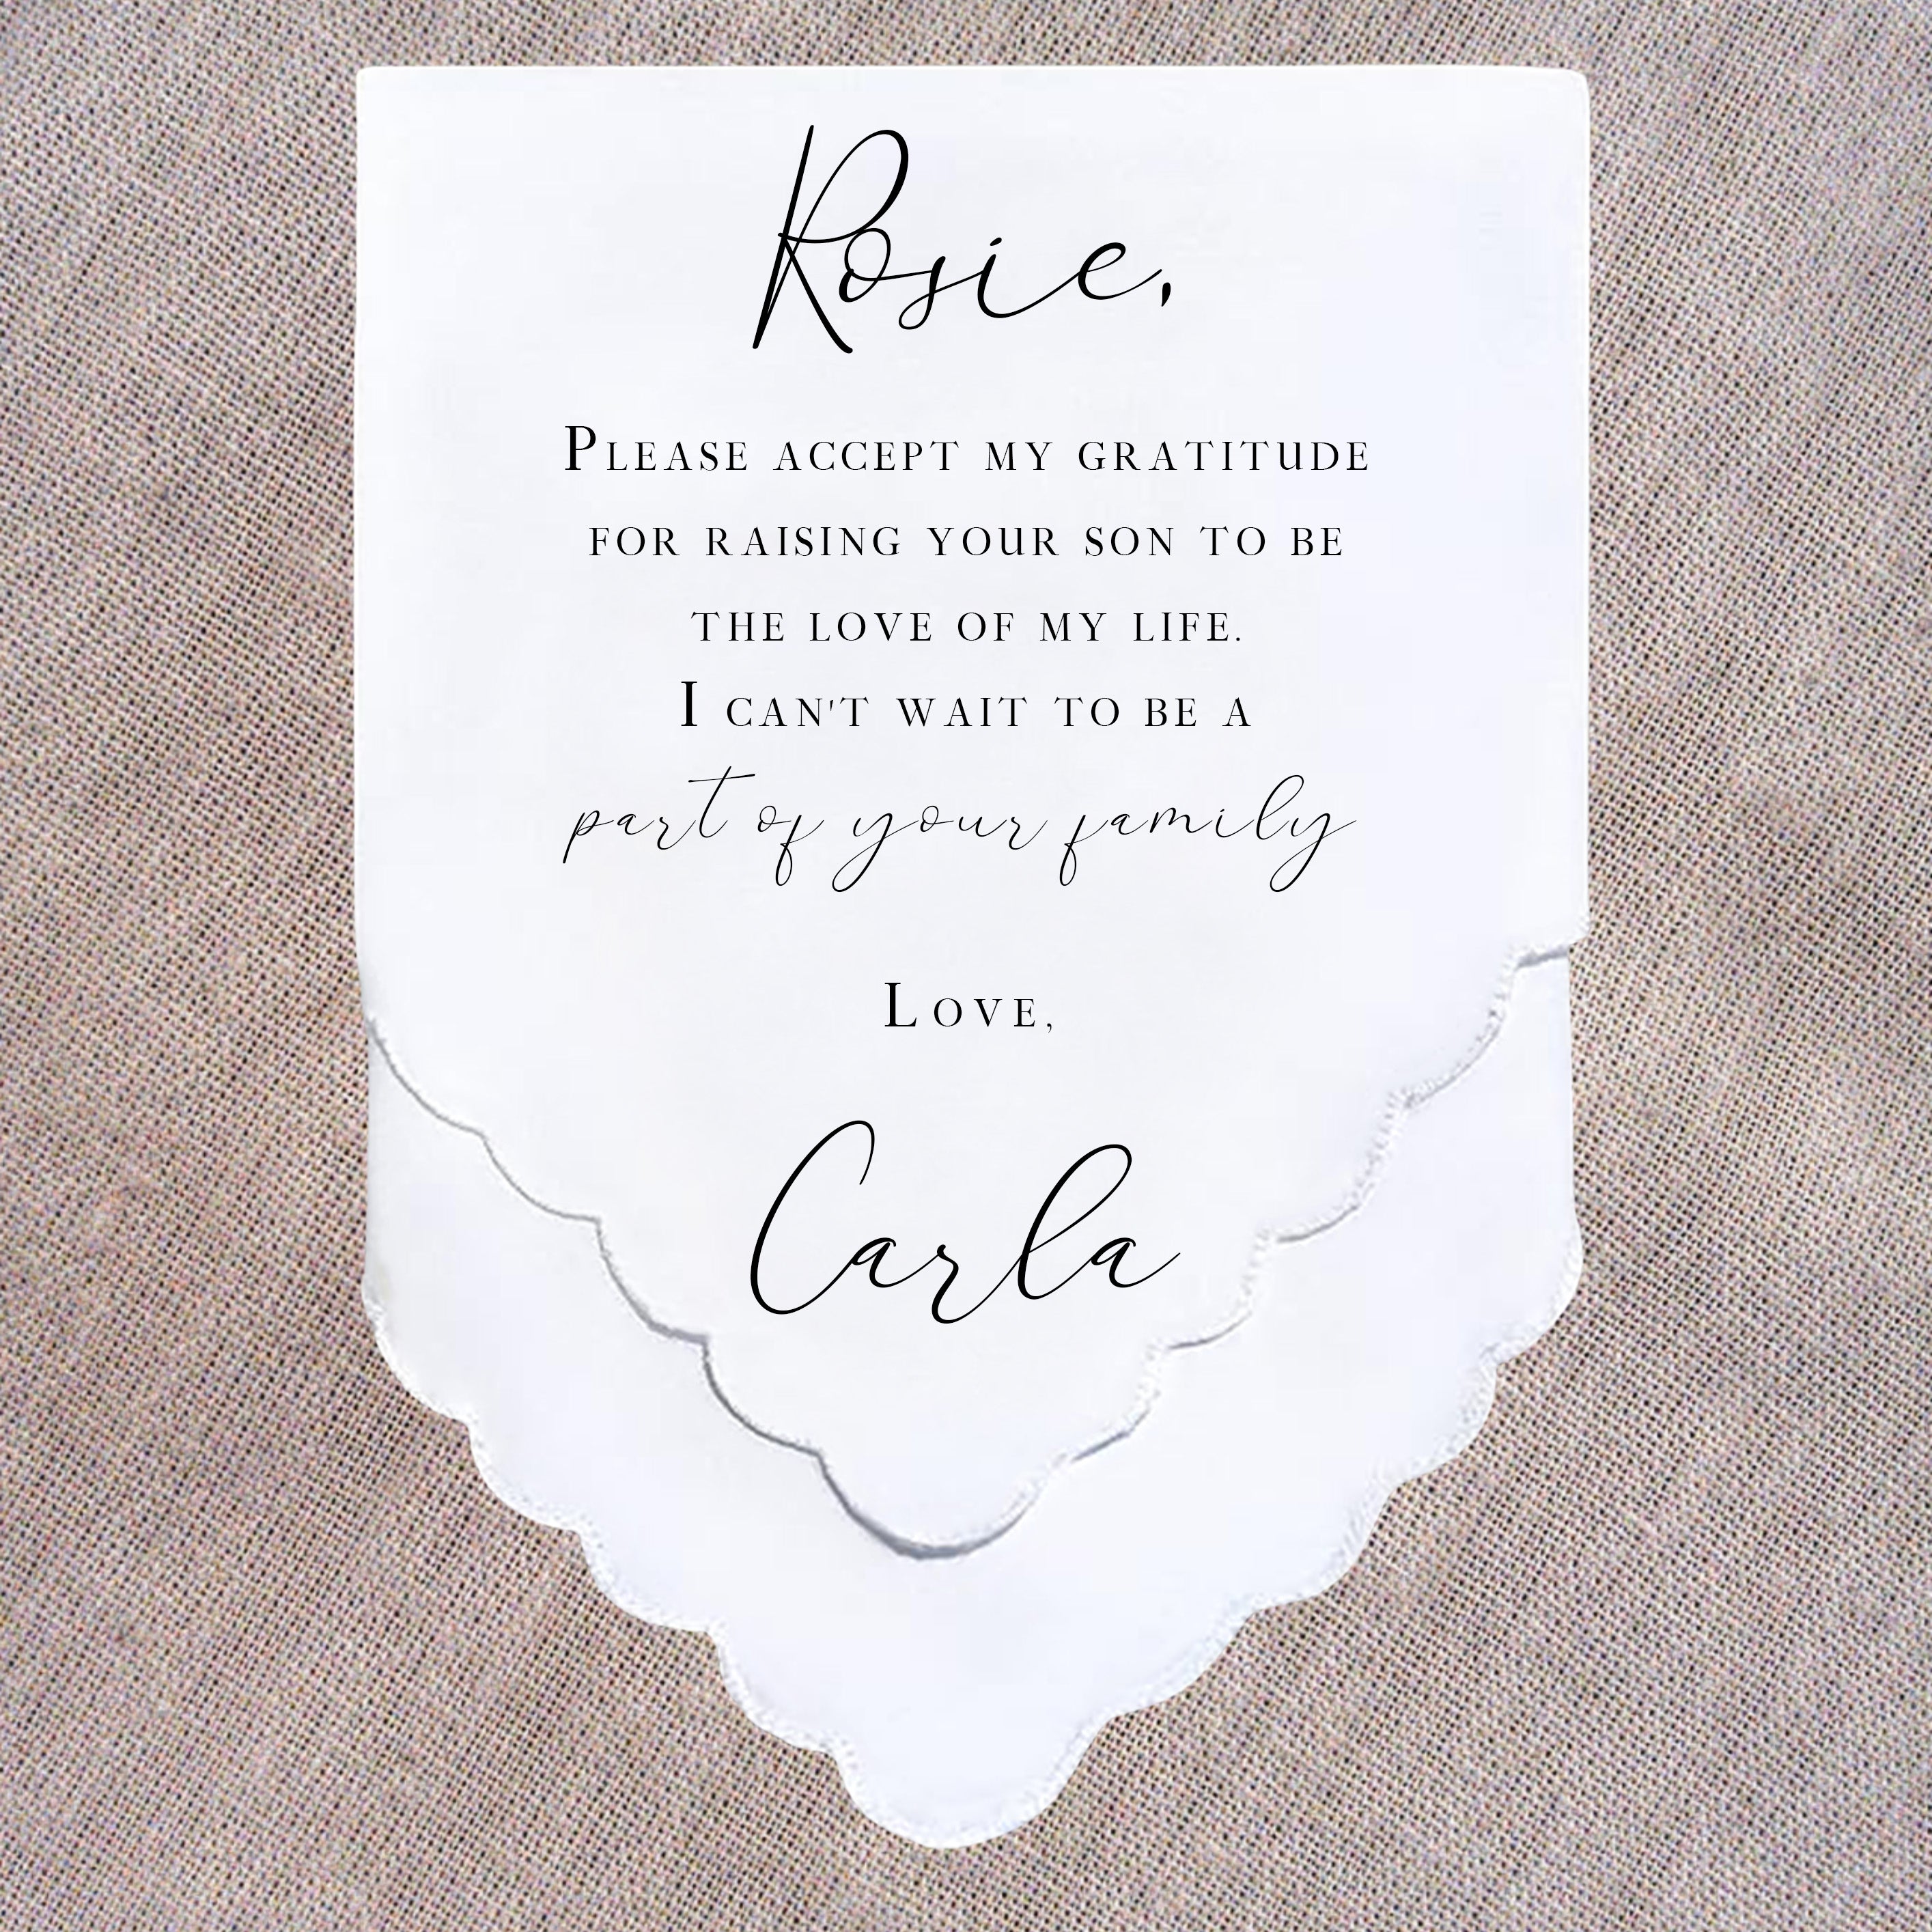 Rosie,
Please accept my gratitude
for raising your son to be
the love of my life.
I can't wait to be a
part of your family
Love,
Carla